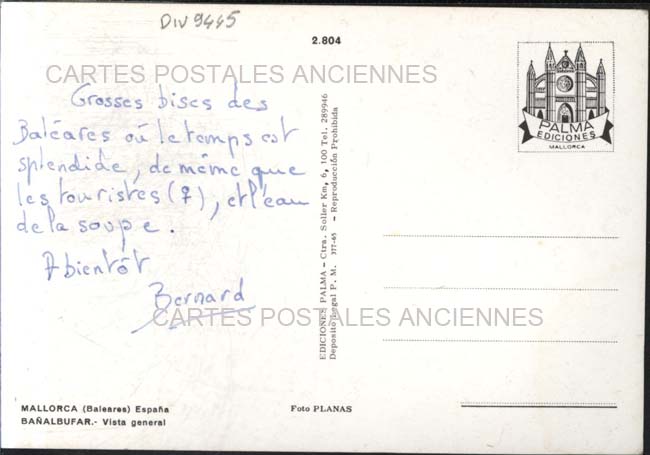 DIV 9445
2.804
CARTES POSTALES ANCIENNES
Grosses bises des
Baléares où le temps est
splendide, de même que
les touristes (♀), et l'eau
de la soupe.
A bientôt
Bernard
CARTES POSTALES ANCIENNES
MALLORCA (Baleares) España
BAÑALBUFAR.- Vista general
Foto PLANAS
EDICIONES PALMA - Ctra. Soller Km, 6, 100 Tel. 289946
Deposito Legal P. M. 377-65 - Reproducción Prohibida
PALMA
EDICIONES
MALLORCA